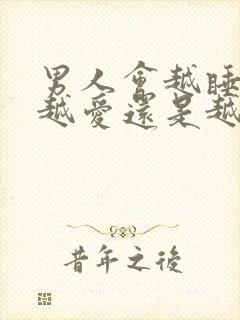 男人會越睡
越愛還是越
昔年之後